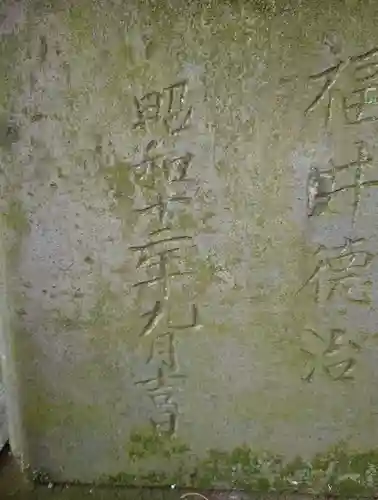 福井德治
昭和十二年九月吉日